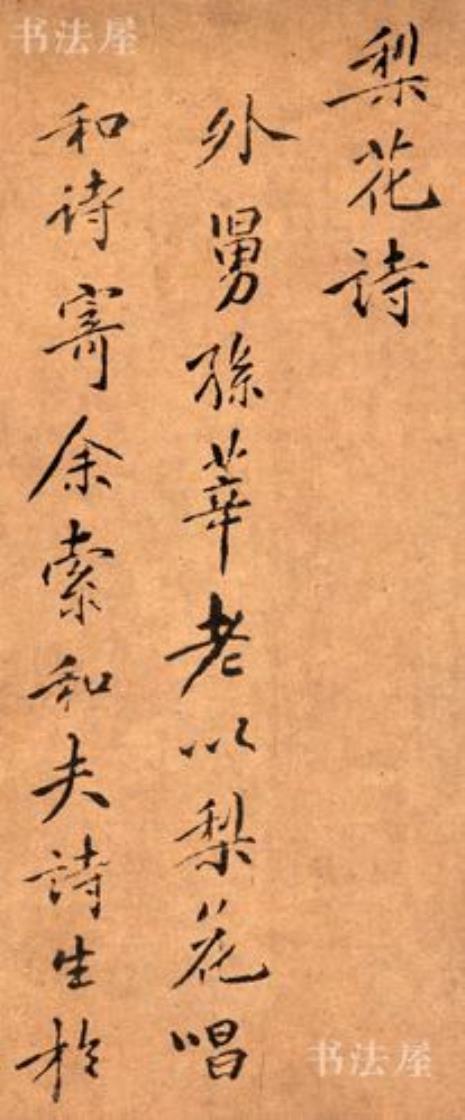 梨花詩
外舅孫莘老以梨花唱
和詩寄余索和夫詩生於
书法屋
书法屋